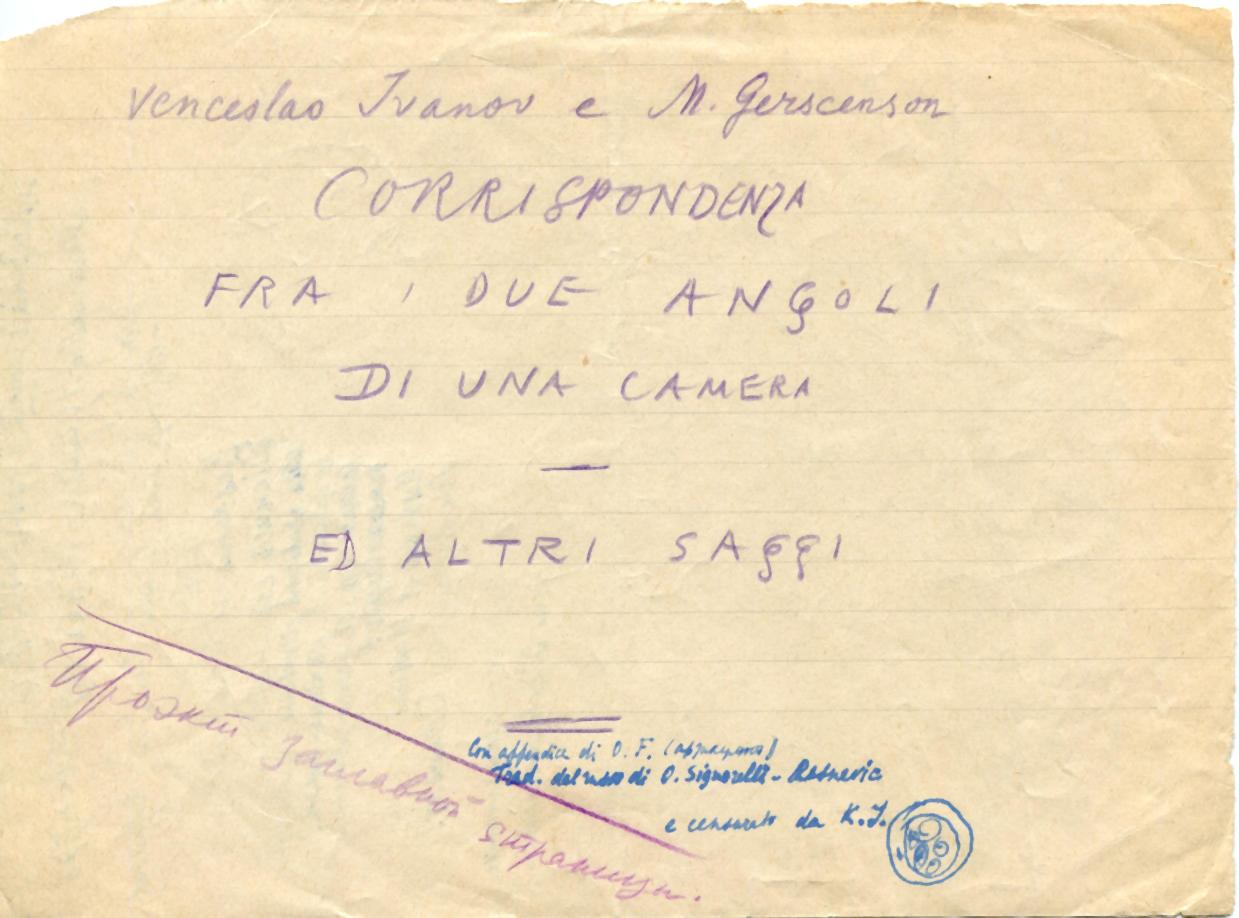 Venceslao Ivanov e M. Gerscenson
CORRISPONDENZA
FRA I DUE ANGOLI
DI UNA CAMERA
—
ED ALTRI SAGGI
Проэкт заглавной страницы.
Con appendice di O. F.
Trad. dal russo di O. Signorelli - Resnevic
e censurato da K. J.